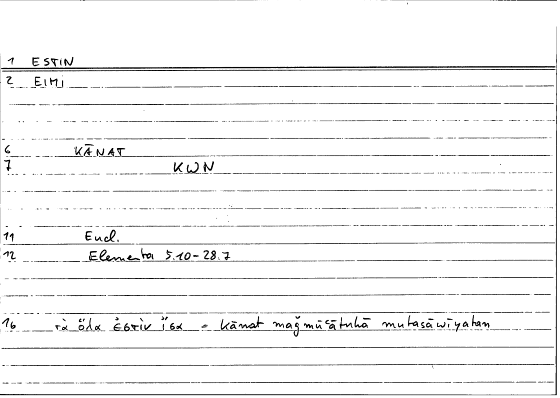 1 ESTIN
2 EIMI
6 KĀNAT
7 KWN
11 Eucl.
12 Elementa 5.10-28.7
16 τὰ ὅλα ἐστὶν ἴσα = kānat maǧmūʿātuhā mutasāwiyatan